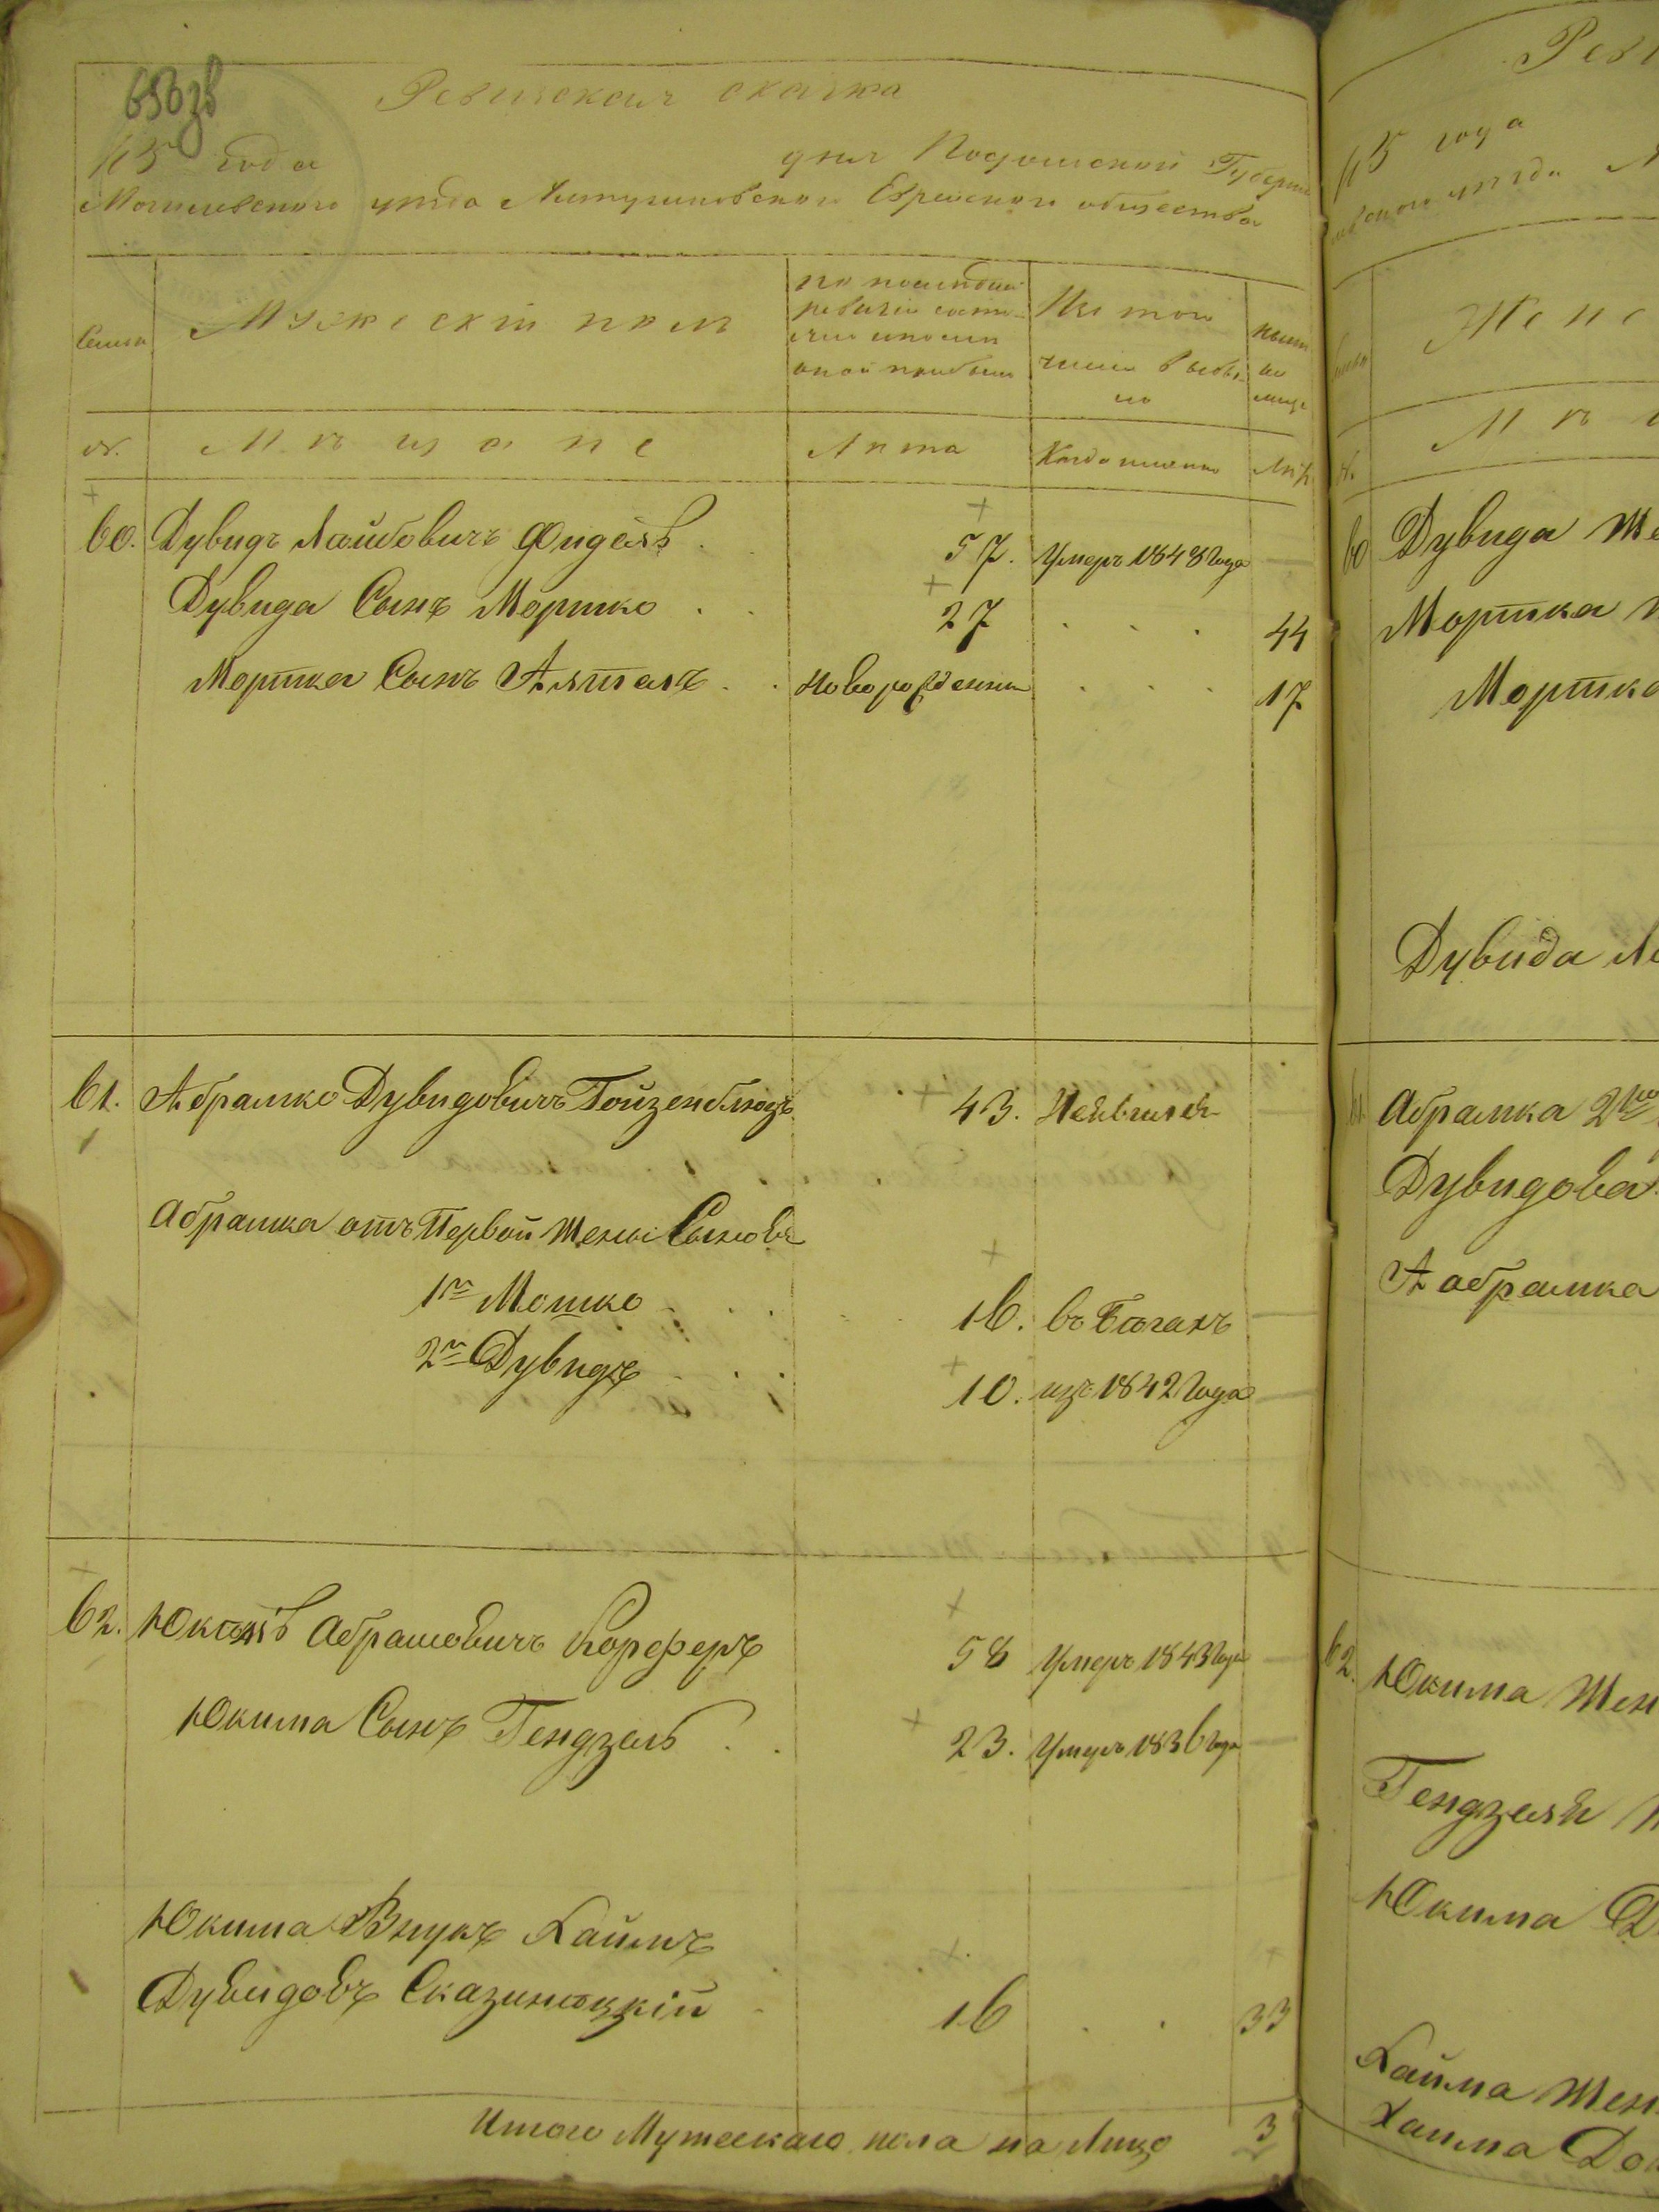 656зв
Ревизская сказка
115 года
дня Подольской Губернии
Могилевского уезда Лучинского Еврейского общества
Семьи
Мужеский полъ
по последней ревизіи состояло и после оной прибыло
Изъ того числа выбыло
ныне на лице
№.
Мѣщане
Лѣта
Когда именно
Лѣта
60. Дувидъ Лейбовичъ Фидель . 57. Умеръ 1848 Года
Дувида Сынъ Моршко . . 27 . . . 44
Моршка Сынъ Алталъ . . новорожденны . . . 17
61. Абрамко Дувидовичъ Гойзенблюдъ 43. Неявился
Абрамка отъ Первой Жены Сыновя
1й Мошко . . . 16. въ Бѣгахъ
2й Дувидъ . . . 10. изъ 1842 Года
62. Юкель Абрамовичъ Корферъ 58 Умеръ 1843 Года
Юкима Сынъ Гендзель . . 23. Умеръ 1836 Года
Юкима Внукъ Хаимъ
Дувидовъ Сказинецкій 16 . . 33
Итого Мужескаго пола на Лицо 3
115 года
Жен
60 Дувида Же
Моршка
Моршка
Дувида
Абрамка 2й
Дувидова
Аабрамка
62. Юкима Жен
Гендзеля
Юкима
Хаима Жен
Хаима Доч